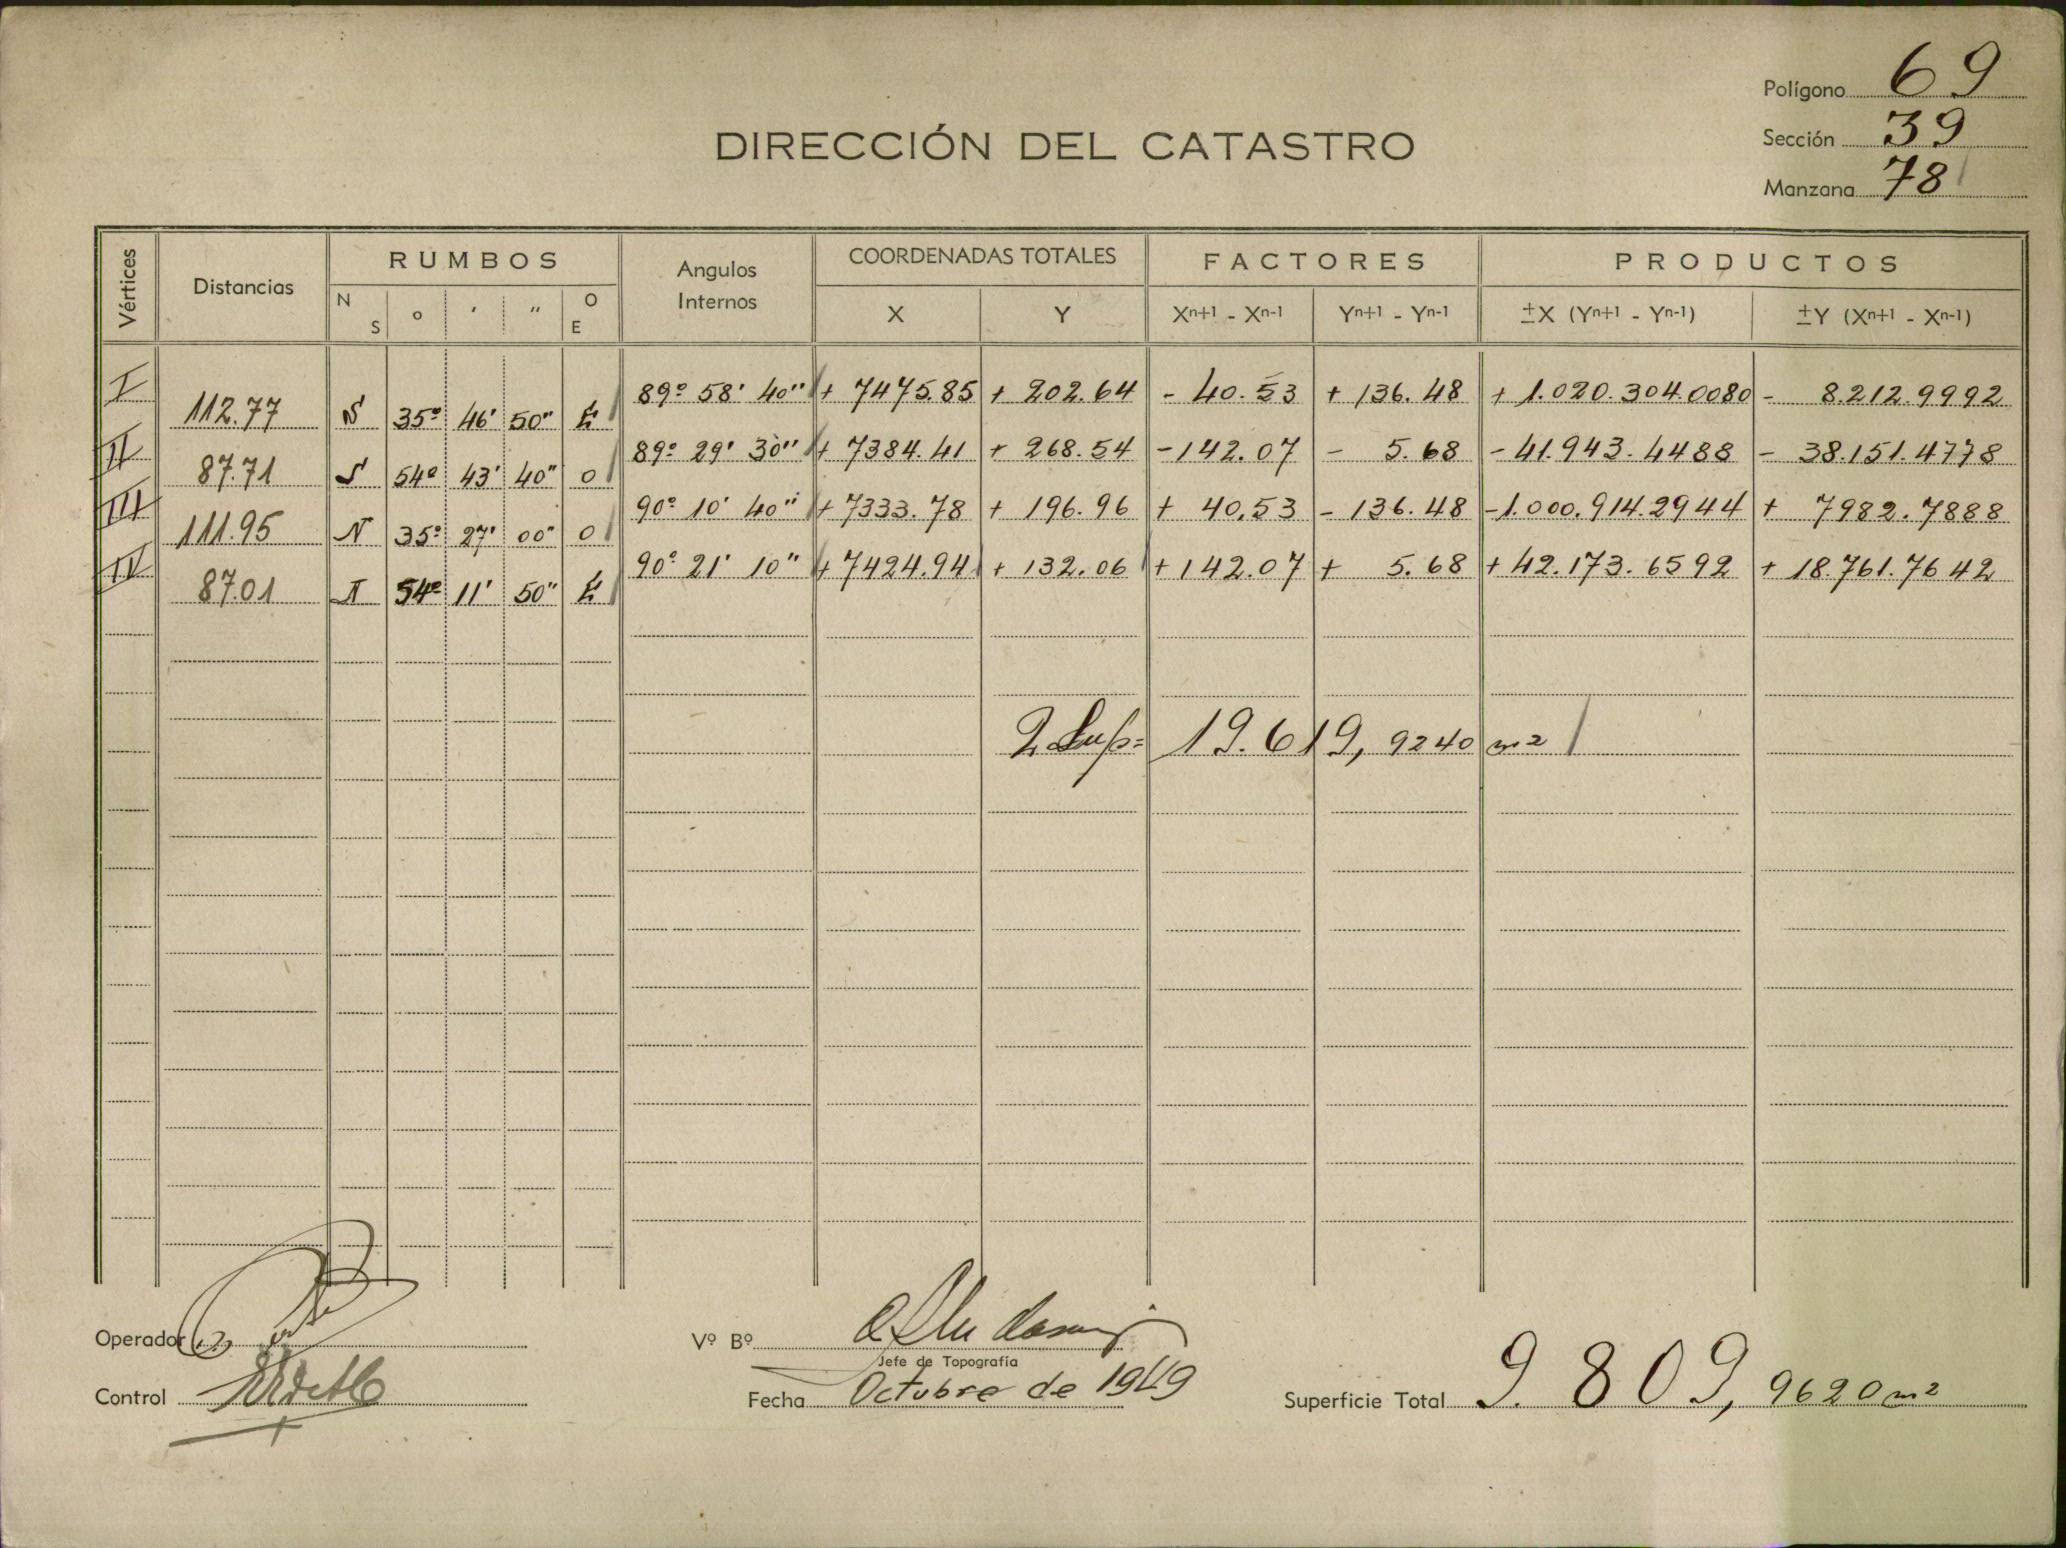 Polígono 69
Sección 39
Manzana 78
DIRECCIÓN DEL CATASTRO
Vértices Distancias RUMBOS Angulos Internos COORDENADAS TOTALES FACTORES PRODUCTOS
N S o ' " O E X Y Xⁿ⁺¹ - Xⁿ⁻¹ Yⁿ⁺¹ - Yⁿ⁻¹ ±X (Yⁿ⁺¹ - Yⁿ⁻¹) ±Y (Xⁿ⁺¹ - Xⁿ⁻¹)
I 89º 58' 40" + 7475.85 + 202.64 - 40.53 + 136.48 + 1.020.304.0080 - 8.212.9992
112.77 S 35º 46' 50" E
II 89º 29' 30" + 7384.41 + 268.54 - 142.07 - 5.68 - 41.943.4488 - 38.151.4778
87.71 S 54º 43' 40" O
III 90º 10' 40" + 7333.78 + 196.96 + 40.53 - 136.48 - 1.000.914.2944 + 7982.7888
111.95 N 35º 27' 00" O
IV 90º 21' 10" + 7424.94 + 132.06 + 142.07 + 5.68 + 42.173.6592 + 18.761.7642
87.01 N 54º 11' 50" E
2 Sup= 19.619, 9240 m²
Operador
Vº Bº
Jefe de Topografía
Control
Fecha Octubre de 1949
Superficie Total 9.809, 9620 m²